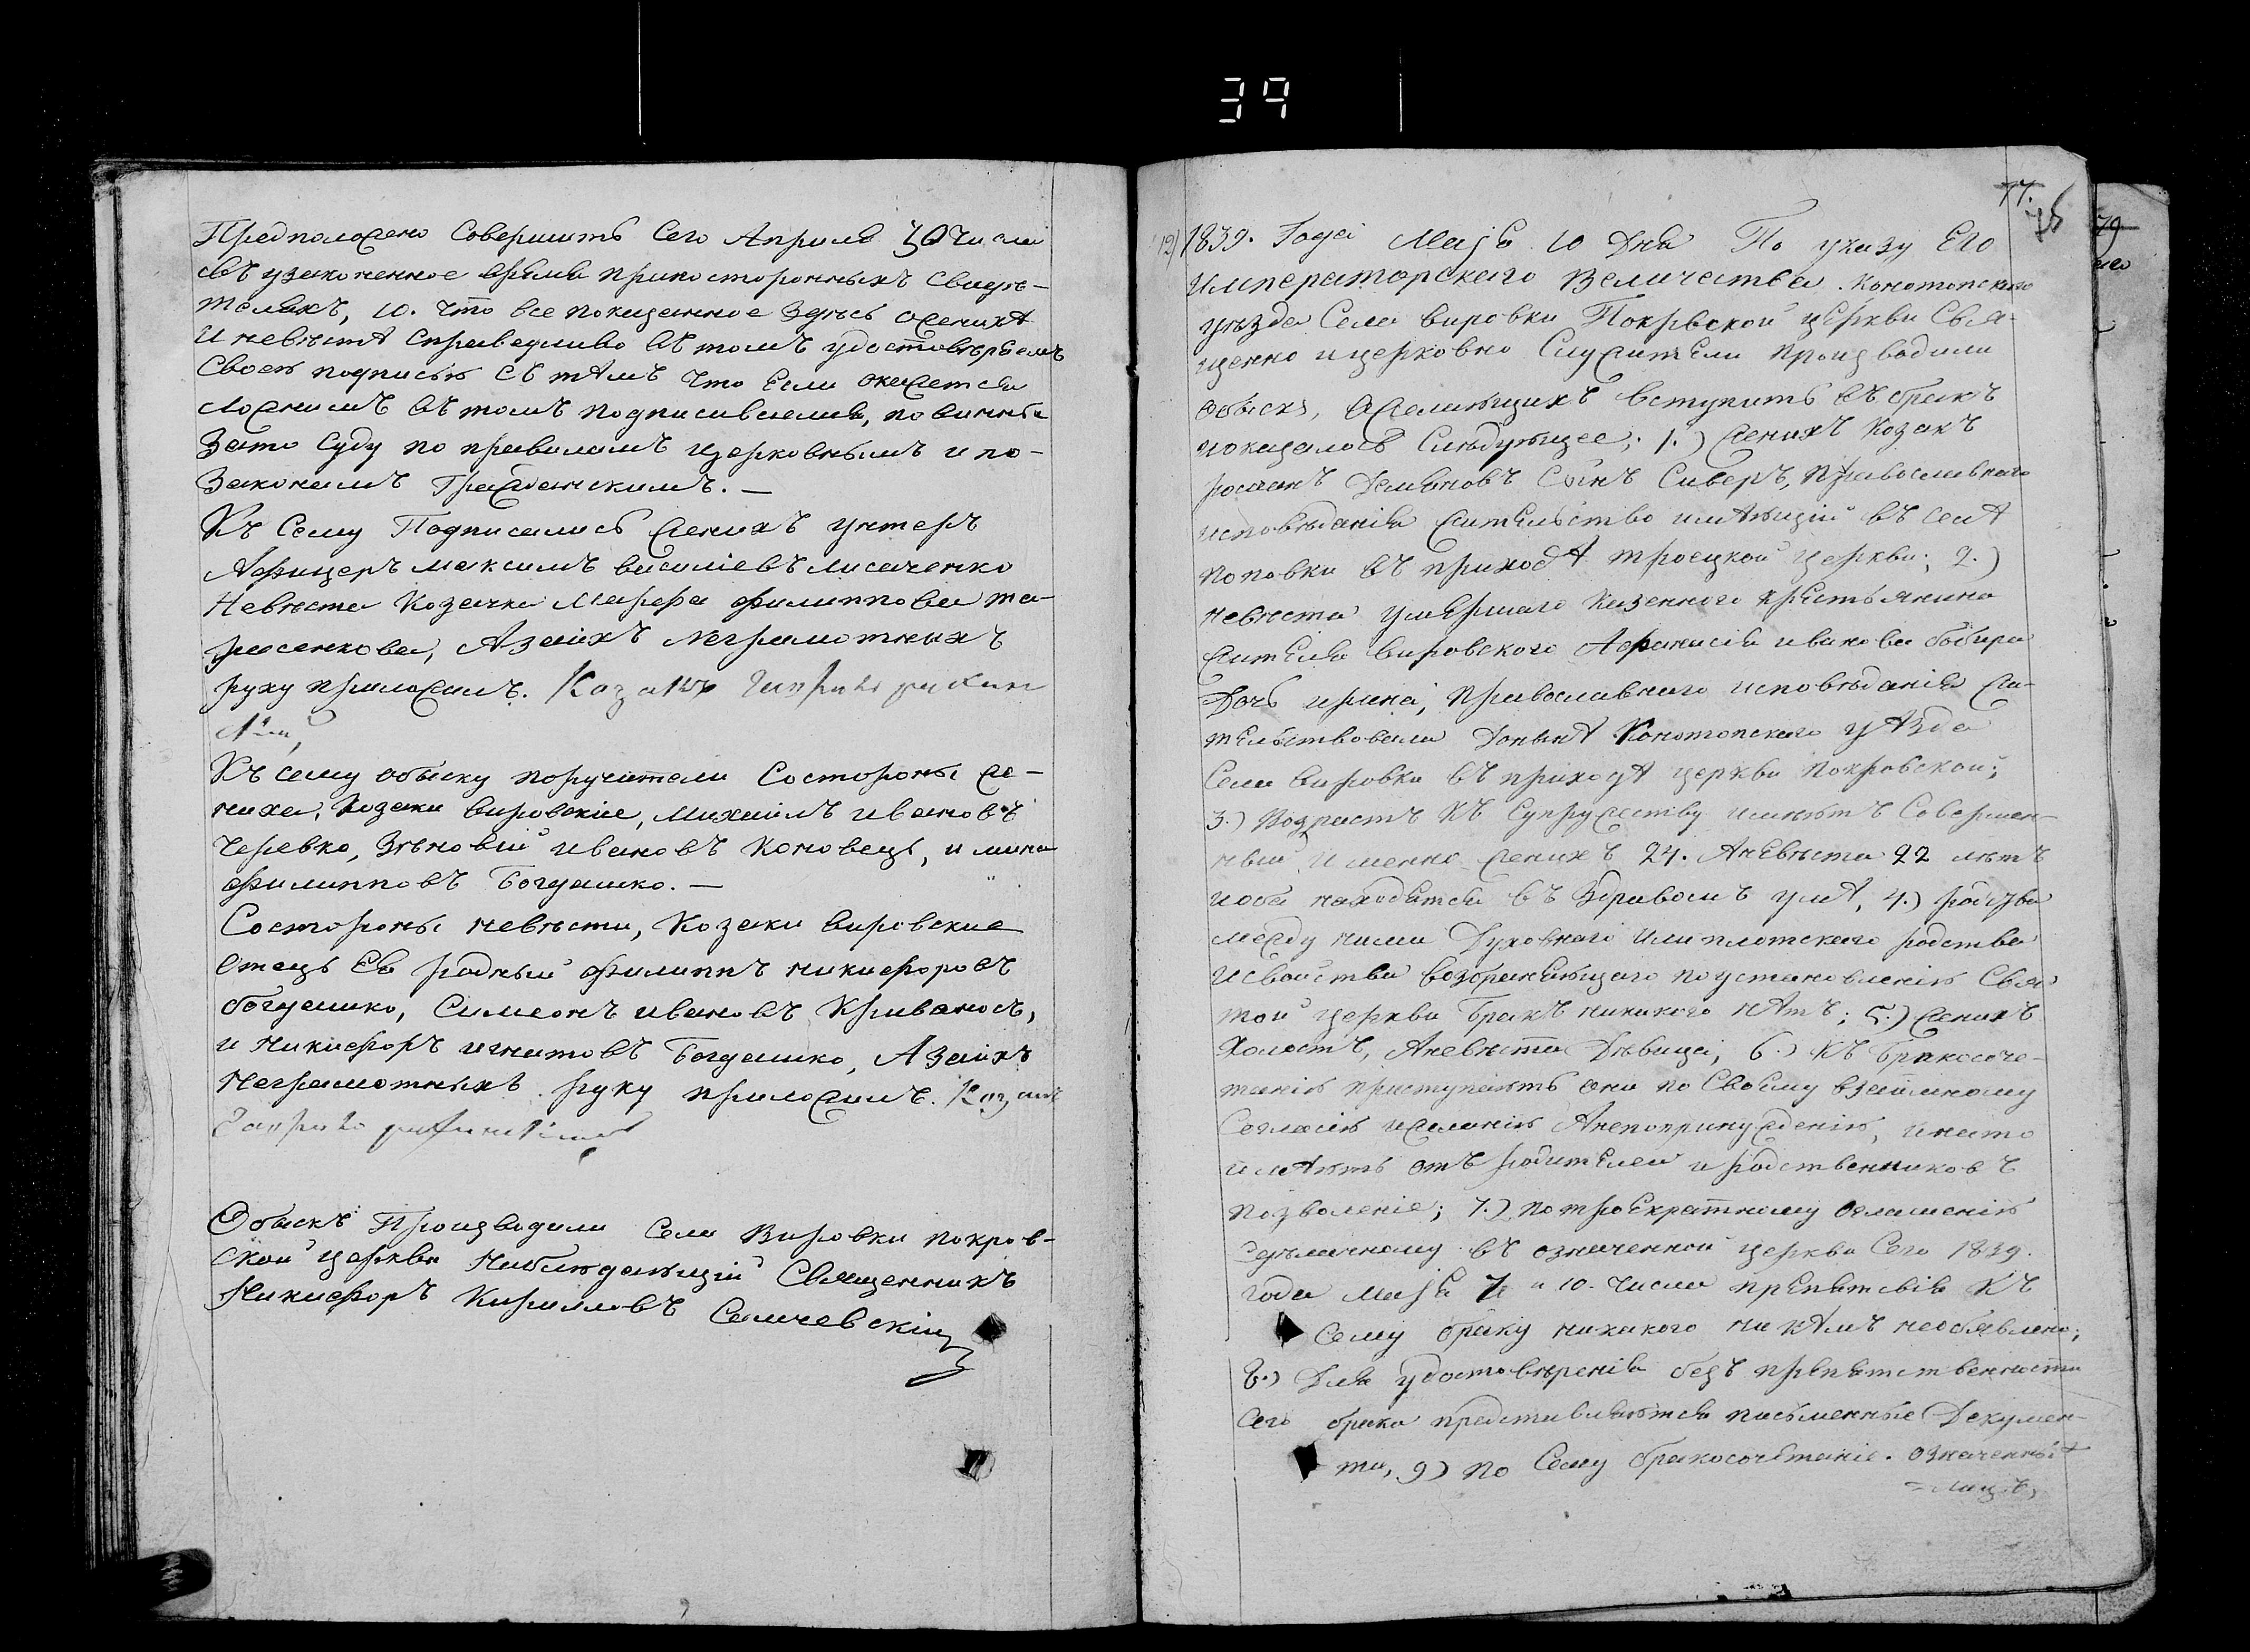 39
Предположено Совершить Сего Апреля 30 числа
въ узаконенное время при посторонныхъ свидѣ-
телахъ, 10. что все показанное здѣсь о женихѣ
и невѣстѣ справедливо въ томъ удостовѣряемъ
своею подписью съ тѣмъ что если окажется
ложнымъ въ томъ подписавшемся, повинны
зато суду по правиламъ церковнымъ и по-
законамъ Гражданскимъ. —
Къ Сему Подписались женихъ унтеръ
Афицеръ максимъ василіевъ лисаченко
Невѣста Козачка Марфа филиппова та-
расенкова, А заихъ неграмотныхъ
руку приложилъ. Козакъ
Къ сему обыску поручители Состороны же-
ниха, Козаки вировскіе, михаилъ ивановъ
Черевко, Зѣновій ивановъ Коновецъ, и мина
филипповъ Богдашко. —
Состороны невѣсти, Козаки вировские
отецъ Ея родный филиппъ никифоровъ
богдашко, Симеонъ ивановъ Кривоносъ,
и Никифоръ игнатовъ Богдашко, А заихъ
Неграмотныхъ руку приложилъ. Козакъ
Обыскъ Производили Села Вировки покров-
ской церкви Наблюдающій Священникъ
Никифоръ Кирилловъ Самчевскій
77.
76
79
12) 1839. Года Маја 10 Дня По указу Его
Императорскаго Величества. Конотопскаго
уѣзда Села вировки Покровской церкви Свя-
щенно и церковно Служители производили
обыскъ, ожелающихъ вступить въ бракъ
иоказалось Слѣдующее; 1.) женихъ Козакъ
романъ Демяновъ Сынъ Сиверъ, православнаго
исповѣданія жительство имѣющій въ селѣ
поповки въ приходѣ троецкой церкви; 2.)
невѣста умершаго Казенного крестьянина
жителя вировского Афанасія иванова бобира
Дочь ирина, православнаго исповѣданія жи-
тельствовала донынѣ Конотопскаго уѣзда
Села вировки въ приходѣ церкви покровской;
3.) Возрастъ къ Супружеству имѣютъ Совершен-
ный, именно женихъ 24. А невѣста 22 лѣтъ
иоба находятся въ Здравомъ умѣ, 4.) родства
между ними Духовнаго или плотскаго родства
и свойства возбраняющаго поустановленію Свя-
той церкви бракъ никакого нѣтъ; 5.) женихъ
Холостъ, А невѣста Дѣвица, 6.) Къ бракосоче-
танію приступаютъ они по Своему взаймному
Согласію ижеланію А непопринужденію, инато
имѣютъ отъ родителей и родственниковъ
позволеніе; 7.) по троекратному оглашенію
Сдѣланному въ означенной церкви Сего 1839.
года Маја 7 и 10. числа препятсвія къ
Сему браку никакого ни кѣмъ необявлено;
8.) Для удостовѣренія безъ препятственности
Сего брака представляются писменные Докумен-
ти, 9) по Сему бракосочетаніе. означеннихъ
= лицъ,